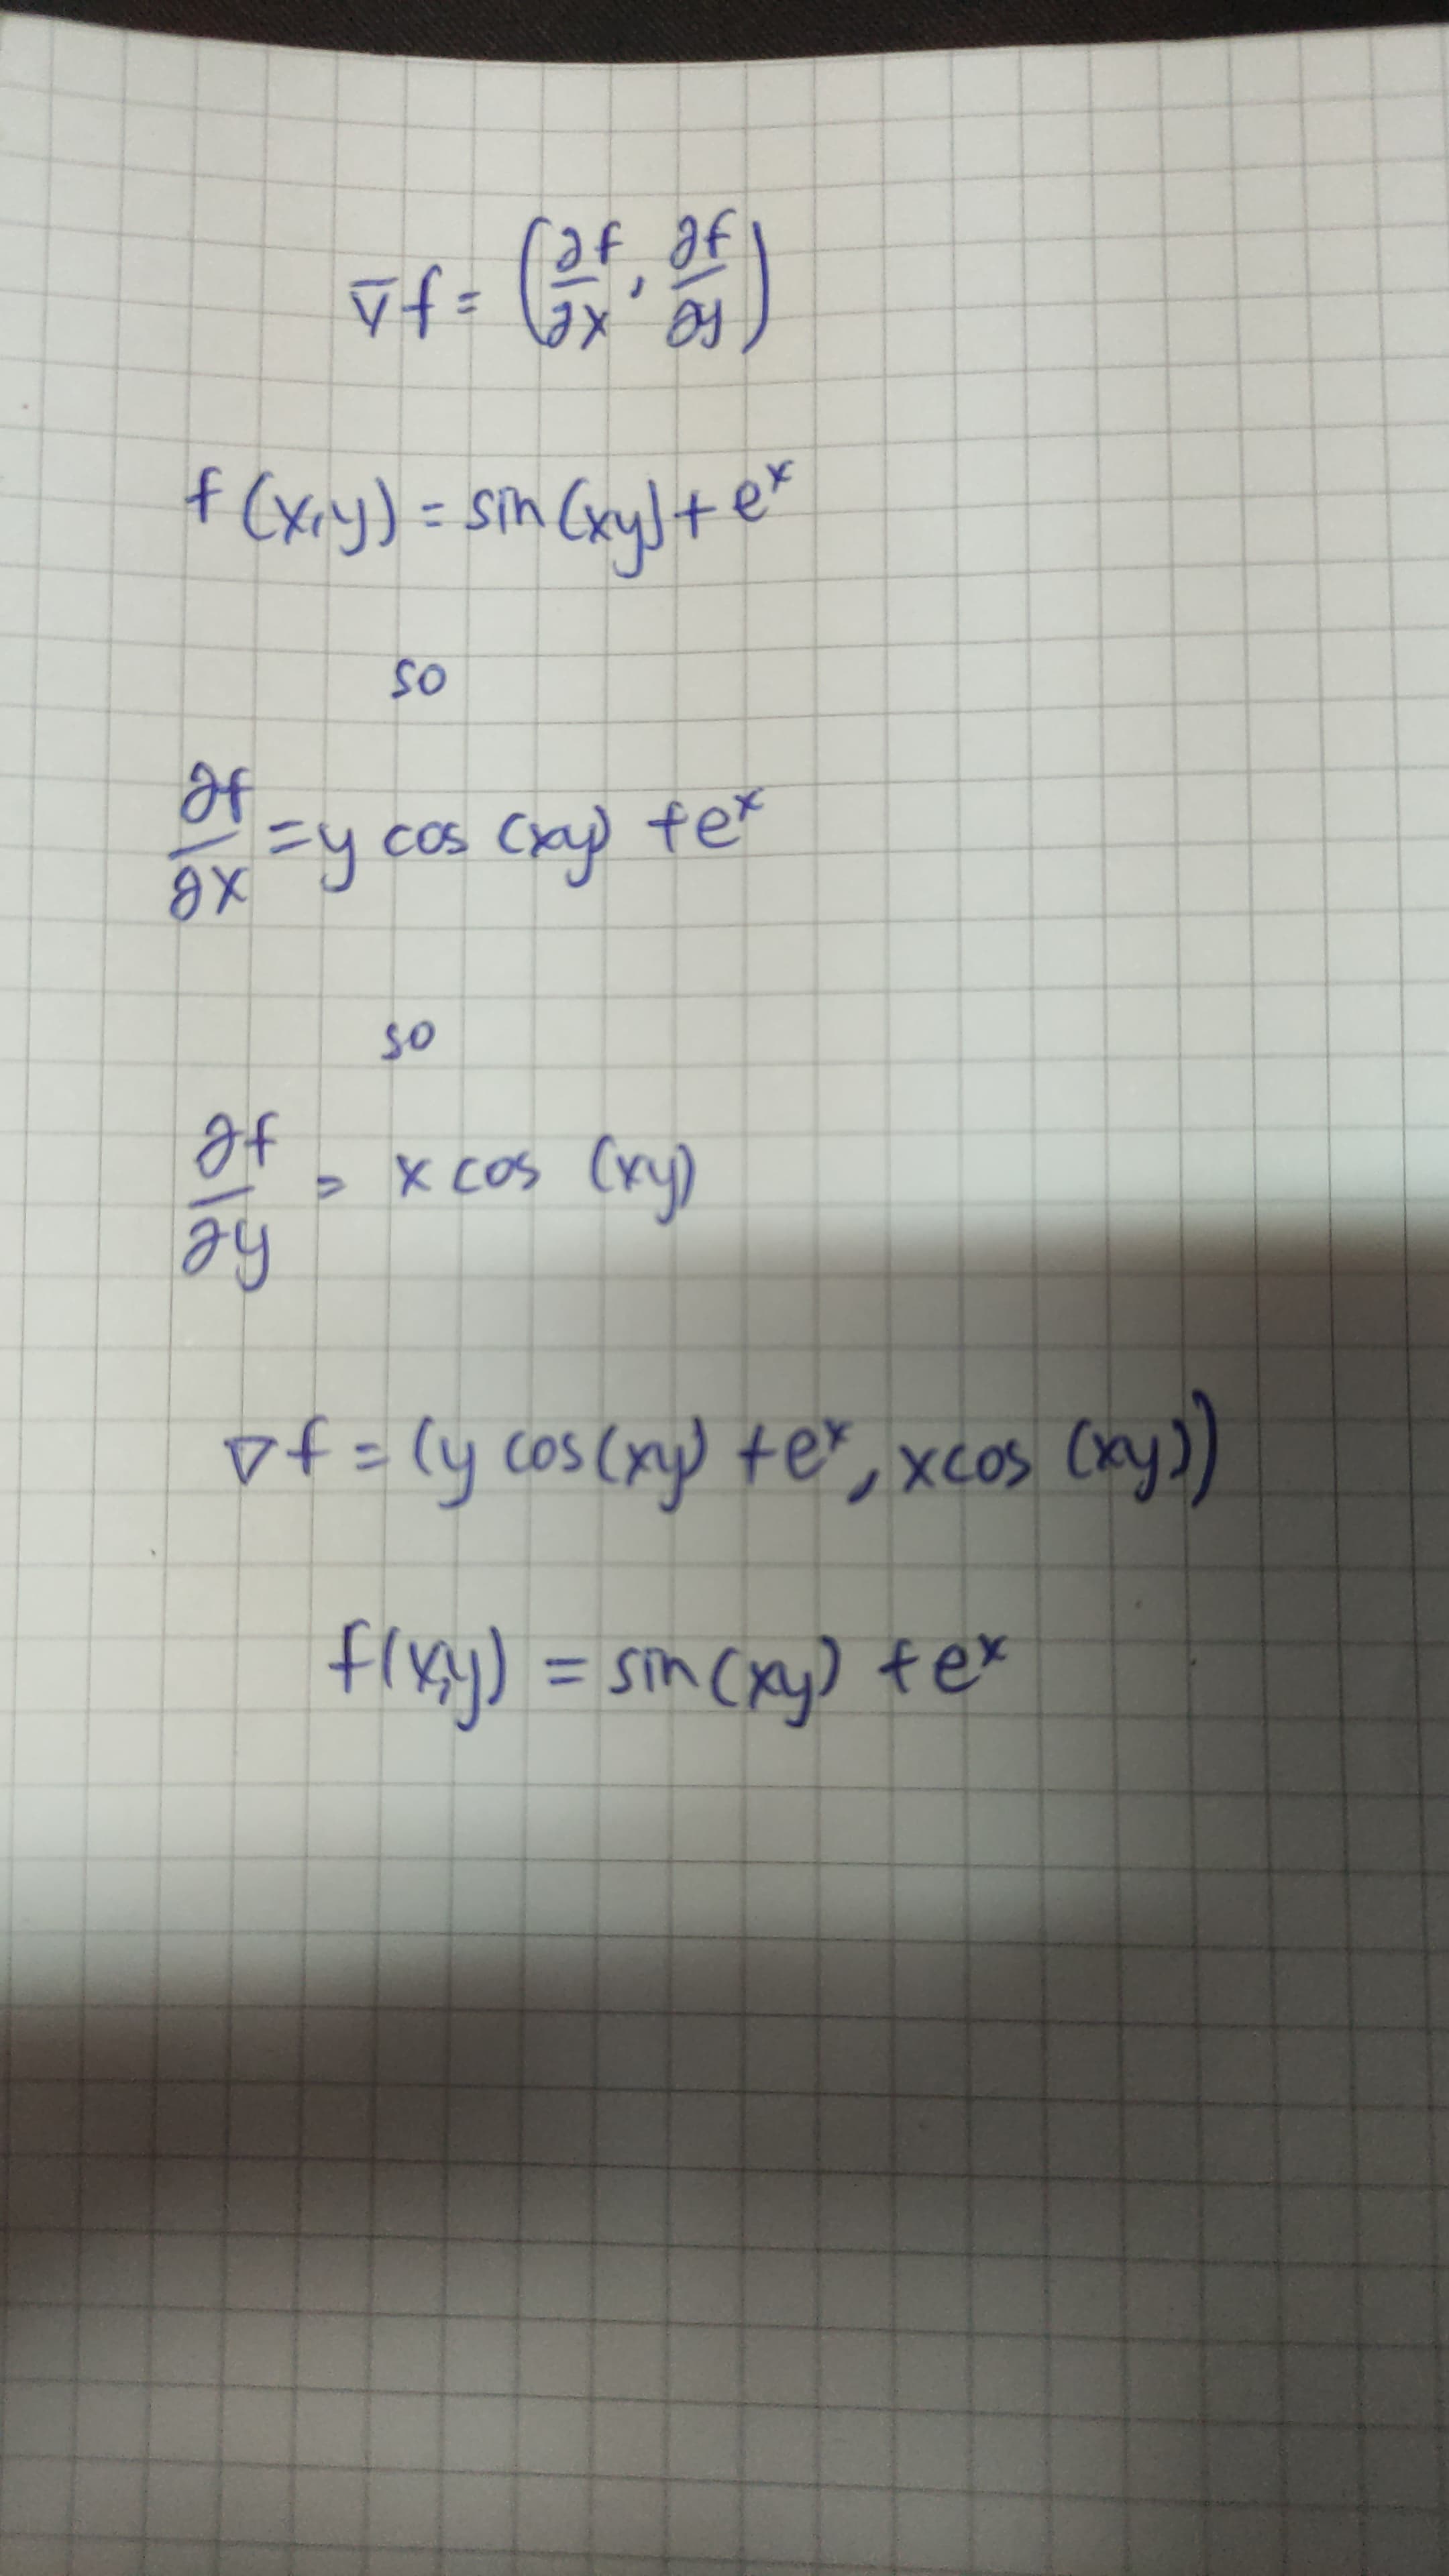 ∇f = (∂f/∂x, ∂f/∂y)
f(x,y) = sin(xy) + e^x
so
∂f/∂x = y cos (xy) + e^x
so
∂f/∂y = x cos (xy)
∇f = (y cos(xy) + e^x, x cos (xy))
f(x,y) = sin(xy) + e^x